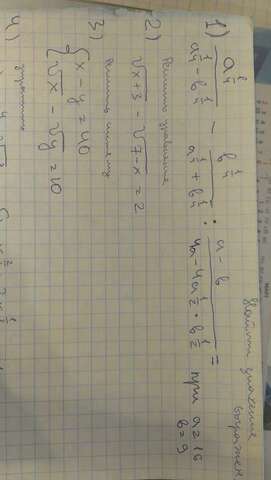 Найти значение выражен
1) a^{1/4} / (a^{1/4} - b^{1/4}) - b^{1/4} / (a^{1/4} + b^{1/4}) : (a - b) / (4a - 4a^{1/2} · b^{1/2}) = при a = 16
b = 9
2) Решить уравнение
√x+3 - √7-x = 2
3) Решить систему
{ x - y = 40
√x - √y = 10
4)